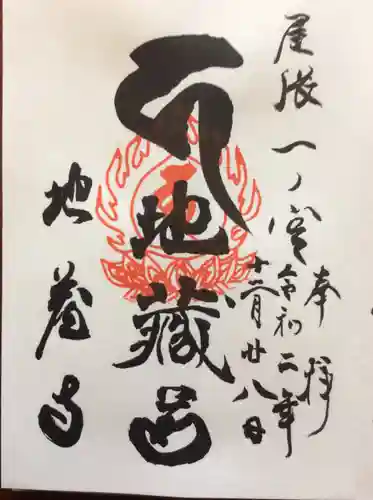 尾張一ノ宮
奉拝
令和二年
十二月廿八日
地蔵㘴
地蔵寺